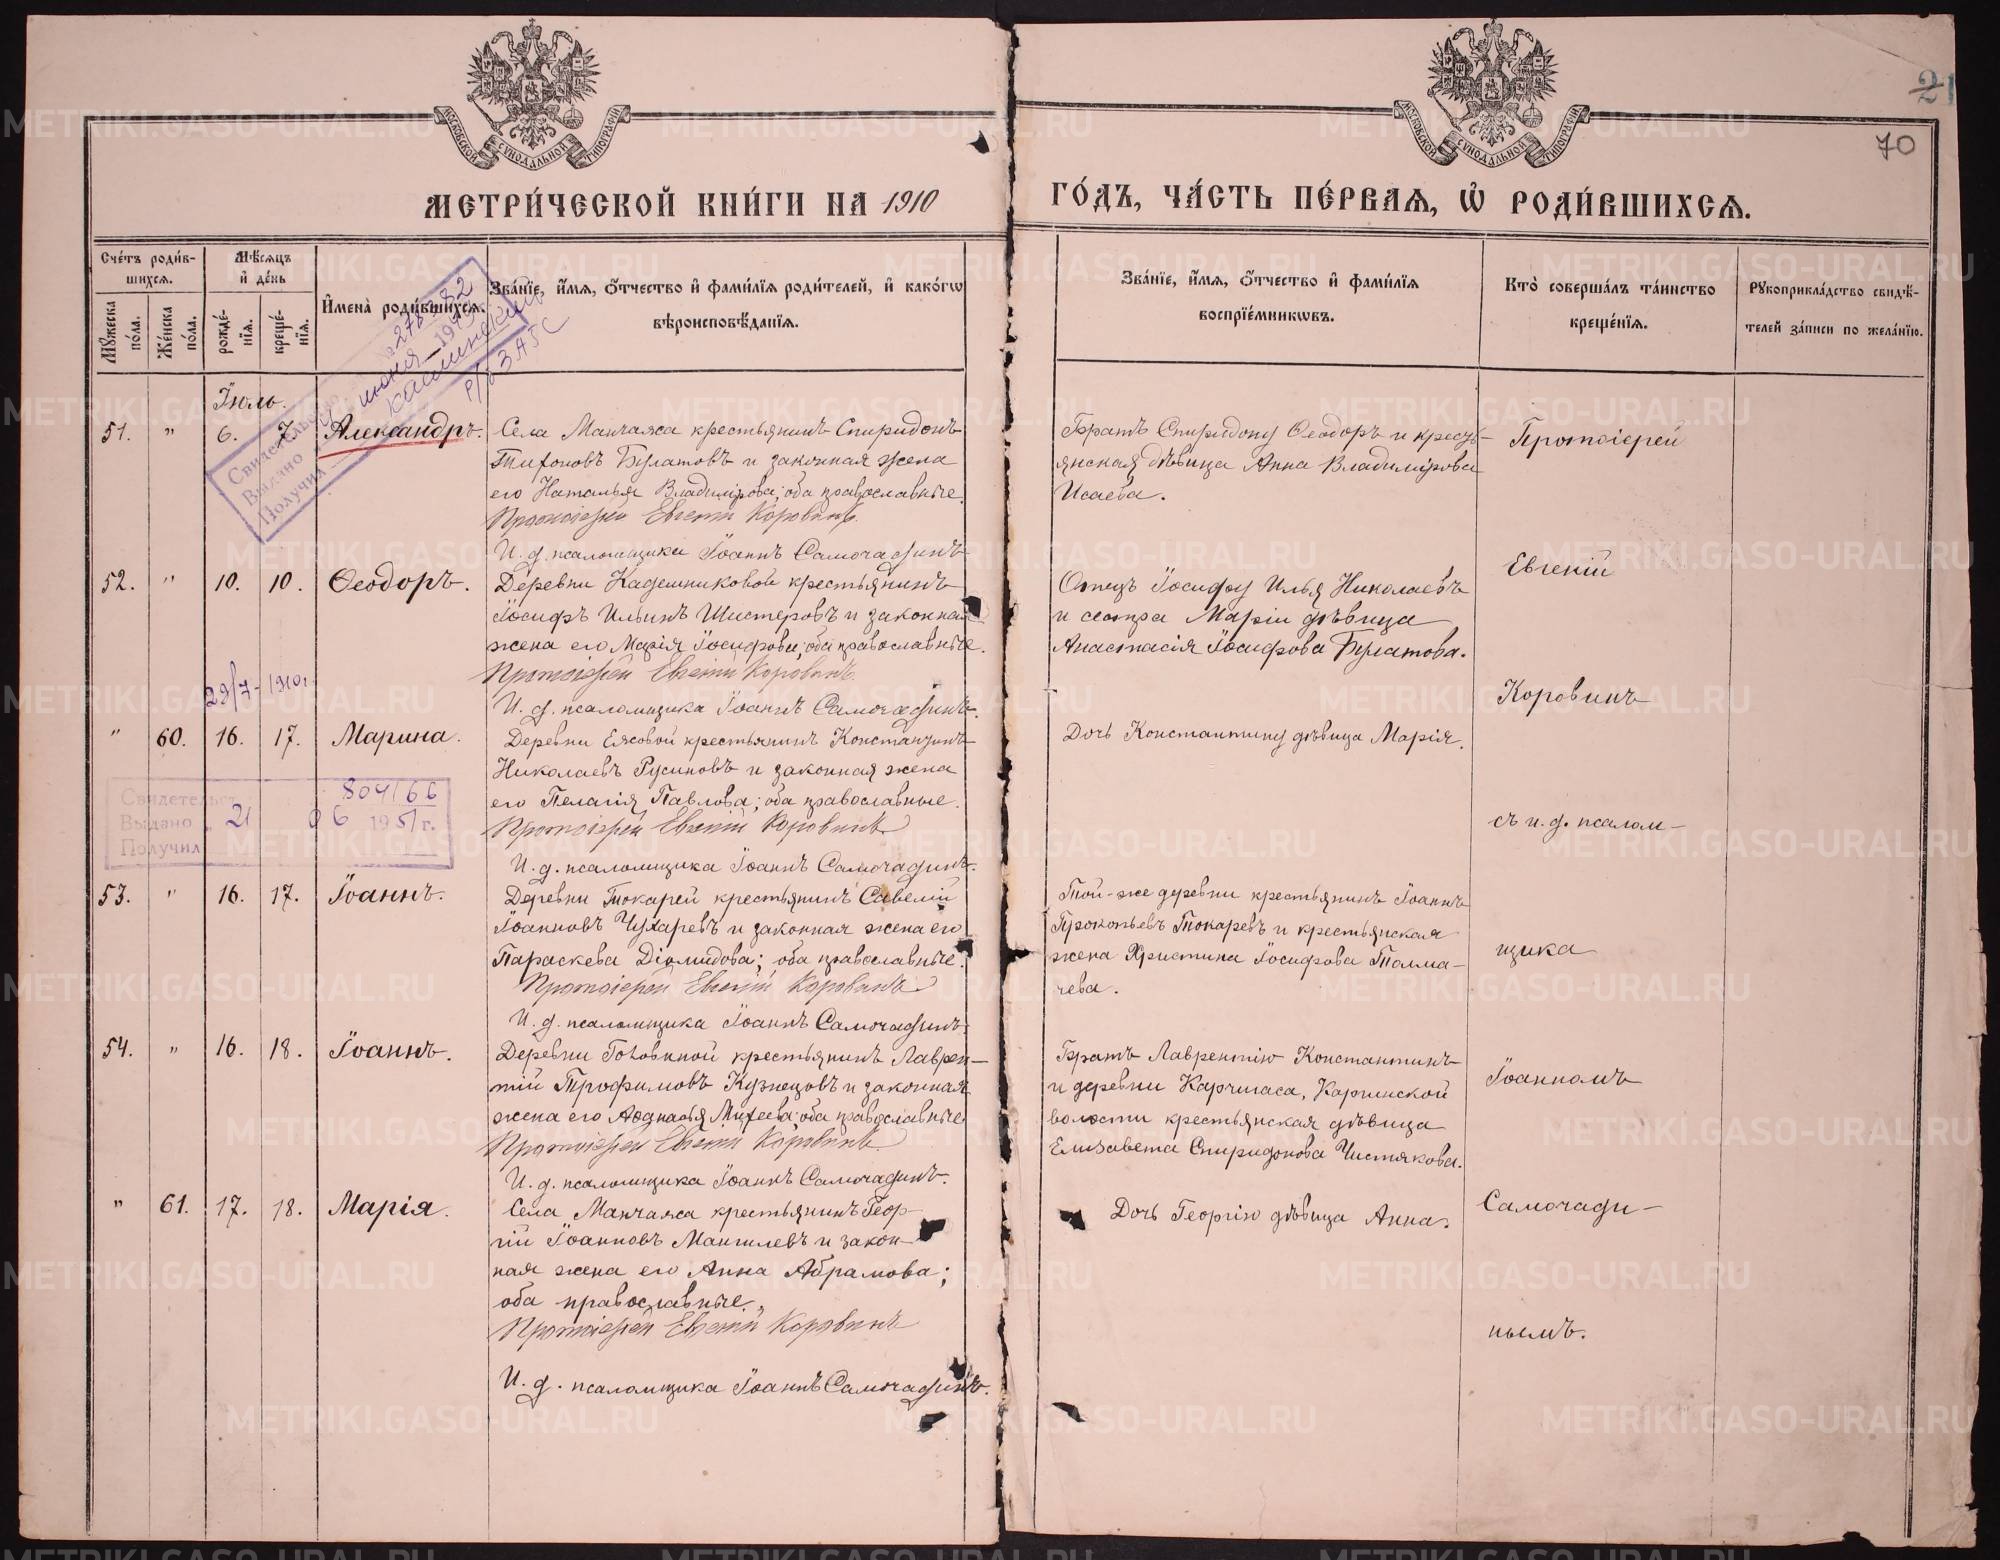 МОСКОВСКОЙ СѴНОДАЛЬНОЙ ТИПОГРАФІИ
МОСКОВСКОЙ СѴНОДАЛЬНОЙ ТИПОГРАФІИ
21
70
МЕТРИ́ЧЕСКОЙ КНИ́ГИ НА 1910 ГО́ДЪ, ЧА́СТЬ ПЕ́РВАѦ, Ѡ҆ РОДИ́ВШИХСѦ.
Сче́тъ роди́в-
шихсѧ.
Мѣ́сѧцъ
и҆ де́нь
Мꙋ́жеска по́ла.
Же́нска по́ла.
рожде́нїѧ.
креще́нїѧ.
И҆мена̀ роди́вшихсѧ.
Зва́нїе, и҆́мѧ, ѻ҆́тчество и҆ фами́лїѧ роди́телей, и҆ како́гѡ
вѣроисповѣ́данїѧ.
Зва́нїе, и҆́мѧ, ѻ҆́тчество и҆ фами́лїѧ
воспрїе́мникѡвъ.
Кто̀ соверша́лъ та́инство
креще́нїѧ.
Рꙋкоприкла́дство свидѣ́-
телей за́писи по жела́нїю.
Свидетельство
Выдано июня 19
Получил
Р/БЗАГС
Іюль.
51. " 6. 7. Александръ.
Села Манчажа крестьянинъ Спиридонъ
Тихоновъ Булатовъ и законная жена
его Наталья Владимірова; оба православные.
Протоіерей Евгеній Коровинъ.
И. д. псаломщика Іоаннъ Самочадинъ
Братъ Спиридону Ѳеодоръ и кресть-
янская дѣвица Анна Владимірова
Исаева.
52. " 10. 10. Ѳеодоръ.
Деревни Кадешниковой крестьянинъ
Іосифъ Ильинъ Шистеровъ и законная
жена его Марія Іосифова; оба православные.
Протоіерей Евгеній Коровинъ.
И. д. псаломщика Іоаннъ Самочадинъ.
Отецъ Іосифу Илья Николаевъ
и сестра Маріи дѣвица
Анастасія Іосифова Булатова.
29/7-1910г.
" 60. 16. 17. Марина.
Деревни Еясовой крестьянинъ Константинъ
Николаевъ Русиновъ и законная жена
его Пелагія Павлова; оба православные.
Протоіерей Евгеній Коровинъ
И. д. псаломщика Іоаннъ Самочадинъ.
Дочь Константину дѣвица Марія.
Свидетельст 804/66
Выдано „ 21 06 1951 г.
Получил
53. " 16. 17. Іоаннъ.
Деревни Токарей крестьянинъ Савелій
Іоанновъ Чухаревъ и законная жена его
Параскева Діомидова; оба православные.
Протоіерей Евгеній Коровинъ
И. д. псаломщика Іоаннъ Самочадинъ.
Той-же деревни крестьянинъ Іоаннъ
Прокопьевъ Токаревъ и крестьянская
жена Христина Іосифова Толма-
чева.
54. " 16. 18. Іоаннъ.
Деревни Головиной крестьянинъ Лаврен-
тій Трофимовъ Кузнецовъ и законная
жена его Михеева; оба православные
Протоіерей Евгеній Коровинъ.
И. д. псаломщика Іоаннъ Самочадинъ.
Братъ Лаврентію Константинъ
и деревни Карчигаса, Карлинской
волости крестьянская дѣвица
Елизавета Спиридонова Чистякова.
" 61. 17. 18. Марія.
Села Манчажа крестьянинъ Геор-
гій Іоанновъ Мангилевъ и закон-
ная жена его Анна Абрамова;
оба православные.
Протоіерей Евгеній Коровинъ
И. д. псаломщика Іоаннъ Самочадинъ.
Дочь Георгію дѣвица Анна.
Протоіерей
Евгеній
Коровинъ
съ и. д. псалом-
щика
Іоанномъ
Самочади-
нымъ.
METRIKI.GASO-URAL.RU